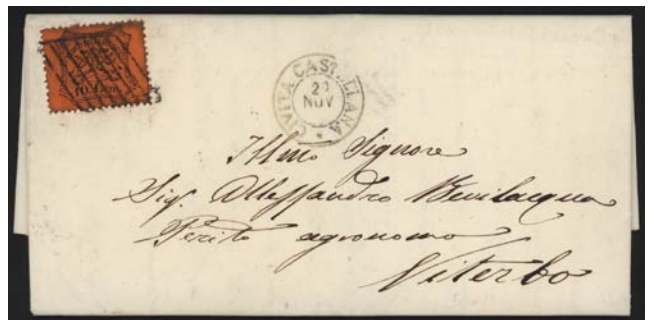 10 Cent.
CIVITA CASTELLANA
29
NOV
Illmo Signore
Sig. Allessandro Bevilacqua
Perito agronomo
Viterbo